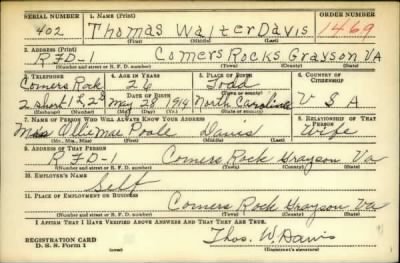 SERIAL NUMBER 1. NAME (Print) ORDER NUMBER
402 Thomas Walter Davis 1469
(First) (Middle) (Last)
2. ADDRESS (Print)
RFD- Comers Rocks Grayson VA
(Number and street or R. F. D. number) (Town) (County) (State)
3. TELEPHONE 4. AGE IN YEARS 5. PLACE OF BIRTH 6. COUNTRY OF CITIZENSHIP
Comers Rock 26 Todd
DATE OF BIRTH
2 short 1 May 28 1914 North Carolina U S A
(Exchange) (Number) (Mo.) (Day) (Yr.) (State or country)
7. NAME OF PERSON WHO WILL ALWAYS KNOW YOUR ADDRESS 8. RELATIONSHIP OF THAT PERSON
Ollie Mae Poole Davis Wife
(Mr., Mrs., Miss) (First) (Middle) (Last)
9. ADDRESS OF THAT PERSON
RFD-1 Comers Rock Grayson Va
(Number and street or R. F. D. number) (Town) (County) (State)
10. EMPLOYER'S NAME
Self
11. PLACE OF EMPLOYMENT OR BUSINESS
Comers Rock Grayson Va
(Number and street or R. F. D. number) (Town) (County) (State)
I AFFIRM THAT I HAVE VERIFIED ABOVE ANSWERS AND THAT THEY ARE TRUE.
REGISTRATION CARD
D. S. S. Form 1 Thos. W. Davis
(Registrant's signature)